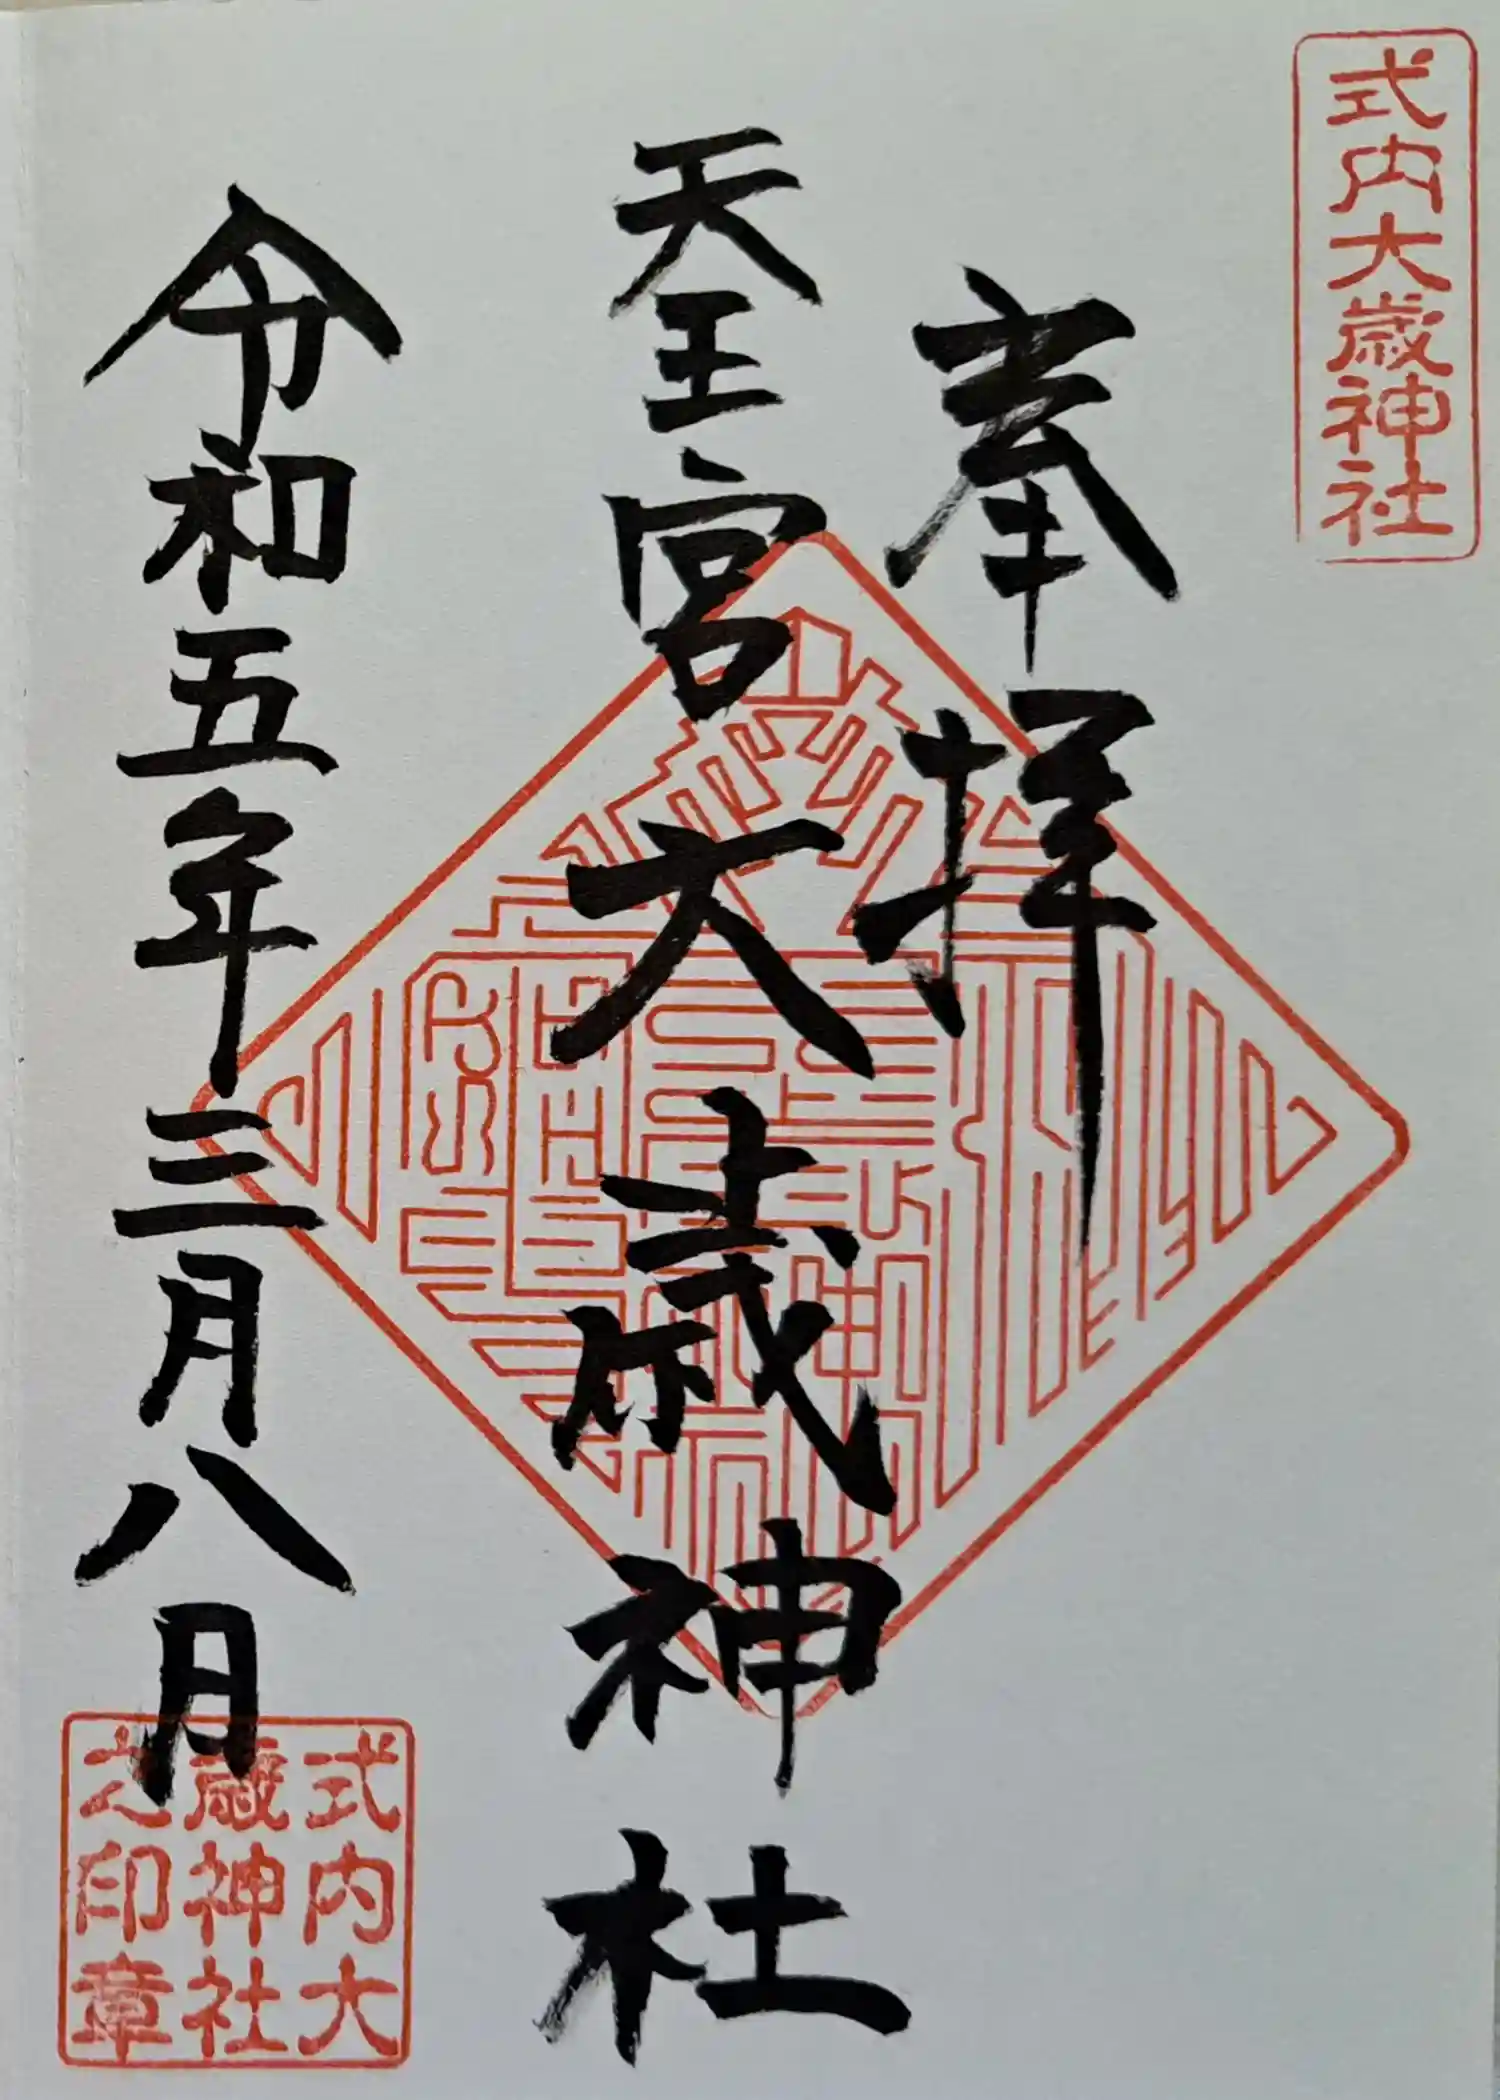 式内大歳神社
奉拝
天王宮大歳神社
令和五年三月八日
式内大
歳神社
之印章